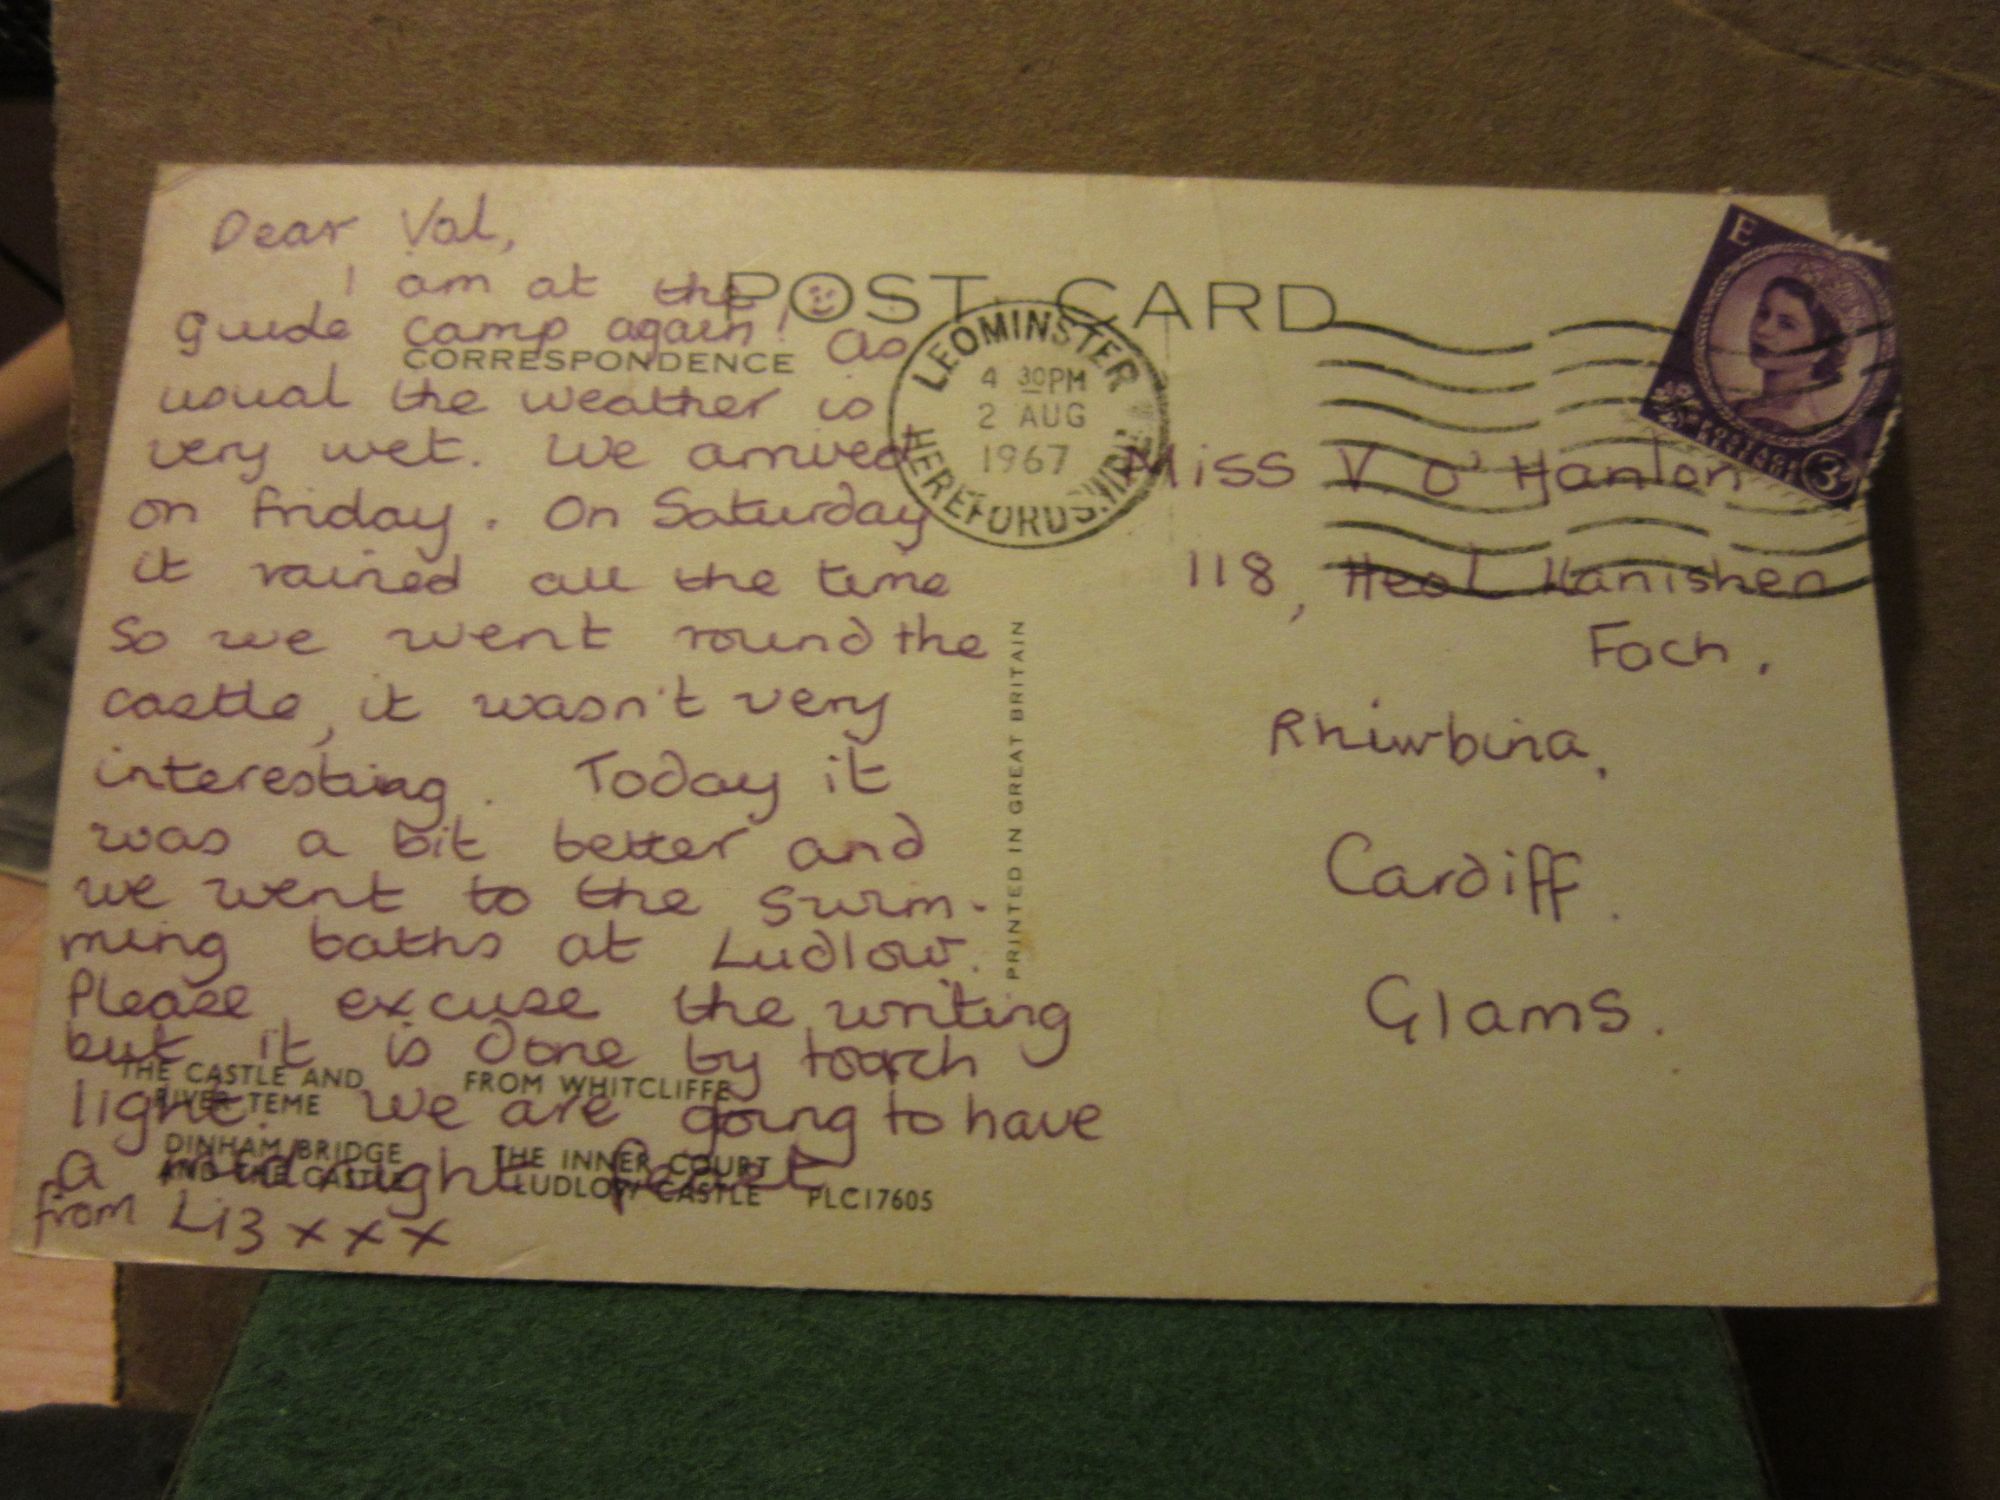 Dear Val,
I am at the
guide camp again! As
usual the weather is
very wet. We arrived
on Friday. On Saturday
it rained all the time
so we went round the
castle, it wasn't very
interesting. Today it
was a bit better and
we went to the swim-
ming baths at Ludlow.
Please excuse the writing
but it is done by torch
light. We are going to have
a midnight feast
from Liz xxx
POST CARD
CORRESPONDENCE
LEOMINSTER
4 30PM
2 AUG
1967
HEREFORDSHIRE
E
POSTAGE
3D
Miss V. O'Hanlon
118, Heol Llanishen
Fach,
Rhiwbina,
Cardiff.
Glams.
PRINTED IN GREAT BRITAIN
THE CASTLE AND
RIVER TEME
FROM WHITCLIFFE
DINHAM BRIDGE
AND THE CASTLE
THE INNER COURT
LUDLOW CASTLE
PLC17605